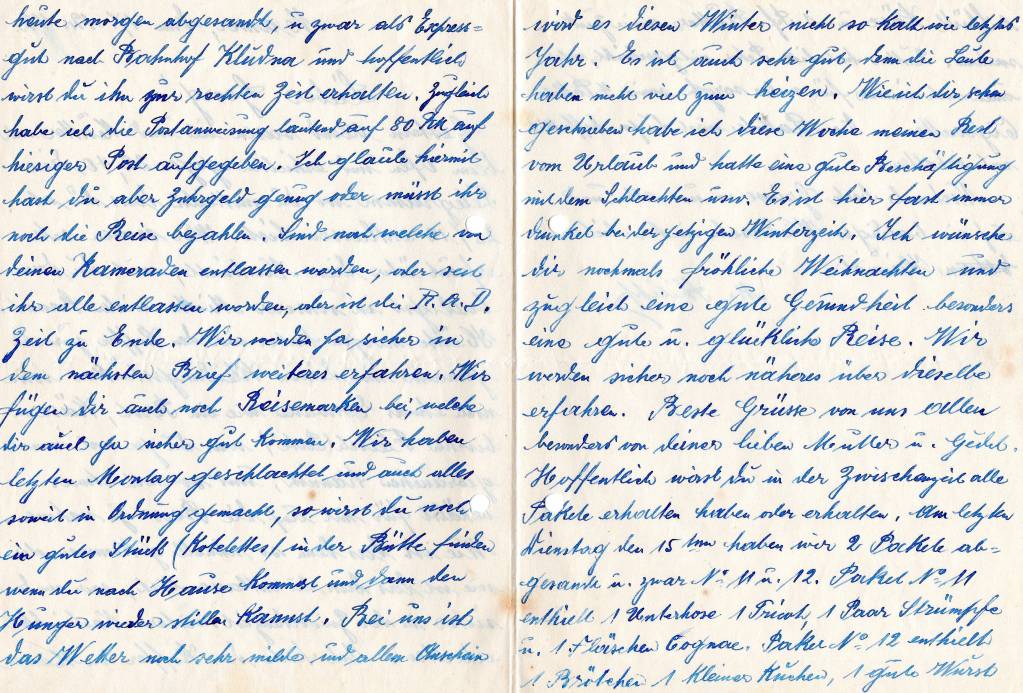 heute morgen abgesandt, u zwar als Express=
gut nach Bahnhof Kludna und hoffentlich
wirst du ihn zur rechten Zeit erhalten. Zugleich
habe ich die Postanweisung lautend auf 80 RM auf
hiesiger Post aufgegeben. Ich glaube hiermit
hast du aber Zehrgeld genug oder müsst ihr
noch die Reise bezahlen. Sind noch welche von
deinen Kameraden entlassen worden, oder seit
ihr alle entlassen worden, oder ist die R.A.D.
Zeit zu Ende. Wir werden ja sicher in
dem nächsten Brief weiteres erfahren. Wir
fügen dir auch noch Reisemarken bei, welche
dir auch ja sicher gut kommen. Wir haben
letzten Montag geschlachtet und auch alles
soweit in Ordnung gemacht, so wirst du noch
ein gutes Stück (Kotelettes) in der Bütte finden
wenn du nach Hause kommst und dann den
Hunger wieder stillen kannst. Bei uns ist
das Wetter noch sehr milde und allem Anschein
wird es diesen Winter nicht so kalt wie letztes
Jahr. Es ist auch sehr gut, denn die Leute
haben nicht viel zum heizen. Wie ich dir schon
geschrieben habe ich diese Woche meinen Rest
vom Urlaub und hatte eine gute Beschäftigung
mit dem Schlachten usw. Es ist hier fast immer
dunkel bei der jetzigen Winterzeit. Ich wünsche
dir nochmals fröhliche Weihnachten und
zugleich eine gute Gesundheit besonders
eine gute u. glückliche Reise. Wir
werden sicher noch näheres über dieselbe
erfahren. Beste Grüsse von uns allen
besonders von deiner lieben Mutter u. Geschw.
Hoffentlich wirst du in der Zwischenzeit alle
Pakete erhalten haben oder erhalten. Am letzten
Dienstag den 15 ten haben wir 2 Pakete ab=
gesandt u. zwar No 11 u. 12. Paket No 11
enthielt 1 Unterhose 1 Tricot, 1 Paar Strümpfe
u. 1 Fläschen Cognac. Paket No 12 enthielt
1 Brötchen 1 kleiner Kuchen, 1 gute Wurst